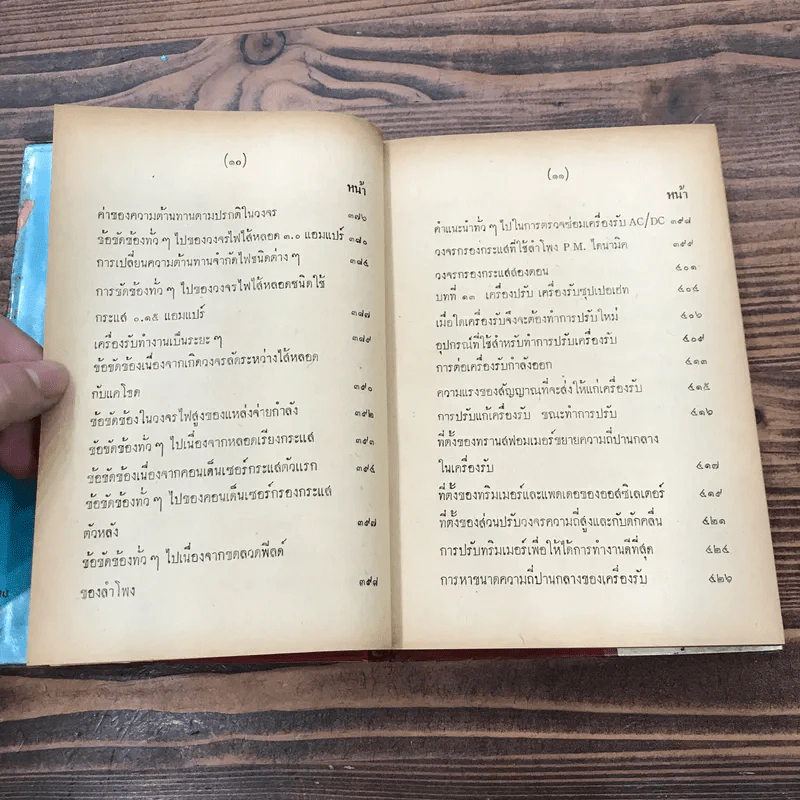 (๑๐)
หน้า
ค่าของความต้านทานตามปรกติในวงจร ๓๗๖
ข้อขัดข้องทั่ว ๆ ไปของวงจรไฟไส้หลอด ๓.๐ แอมแปร์ ๓๘๐
การเปลี่ยนความต้านทานจำกัดไฟชนิดต่าง ๆ ๓๘๔
การขัดข้องทั่ว ๆ ไปของวงจรไฟไส้หลอดชนิดใช้
กระแส ๐.๑๕ แอมแปร์ ๓๘๗
เครื่องรับทำงานเป็นระยะ ๆ ๓๘๙
ข้อขัดข้องเนื่องจากเกิดวงจรลัดระหว่างไส้หลอด
กับแคโธด ๓๙๐
ข้อขัดข้องในวงจรไฟสูงของแหล่งจ่ายกำลัง ๓๙๒
ข้อขัดข้องทั่ว ๆ ไปเนื่องจากหลอดเรียงกระแส ๓๙๓
ข้อขัดข้องเนื่องจากคอนเด็นเซอร์กระแสตัวแรก ๓๙๔
ข้อขัดข้องทั่ว ๆ ไปของคอนเด็นเซอร์กรองกระแส
ตัวหลัง ๓๙๗
ข้อขัดข้องทั่ว ๆ ไปเนื่องจากขดลวดฟีลด์
ของลำโพง ๓๙๘
(๑๑)
หน้า
คำแนะนำทั่ว ๆ ไปในการตรวจซ่อมเครื่องรับ AC/DC ๓๙๘
วงจรกรองกระแสที่ใช้ลำโพง P.M. ไดนามิค ๓๙๙
วงจรกรองกระแสสองตอน ๔๐๑
บทที่ ๑๓ เครื่องปรับ เครื่องรับซุปเปอเฮ็ท ๔๐๔
เมื่อใดเครื่องรับจึงจะต้องทำการปรับใหม่ ๔๐๖
อุปกรณ์ที่ใช้สำหรับทำการปรับเครื่องรับ ๔๐๙
การต่อเครื่องรับกำลังออก ๔๑๓
ความแรงของสัญญาณที่จะส่งให้แก่เครื่องรับ ๔๑๕
การปรับแก้เครื่องรับ ขณะทำการปรับ ๔๑๖
ที่ตั้งของทรานส์ฟอมเมอร์ขยายความถี่ปานกลาง
ในเครื่องรับ ๔๑๗
ที่ตั้งของทริมเมอร์และแพดเดอของออสซิลเตอร์ ๔๑๙
ที่ตั้งของส่วนปรับวงจรความถี่สูงและกับดักคลื่น ๔๒๑
การปรับทริมเมอร์เพื่อให้ได้การทำงานดีที่สุด ๔๒๔
การหาขนาดความถี่ปานกลางของเครื่องรับ ๔๒๖